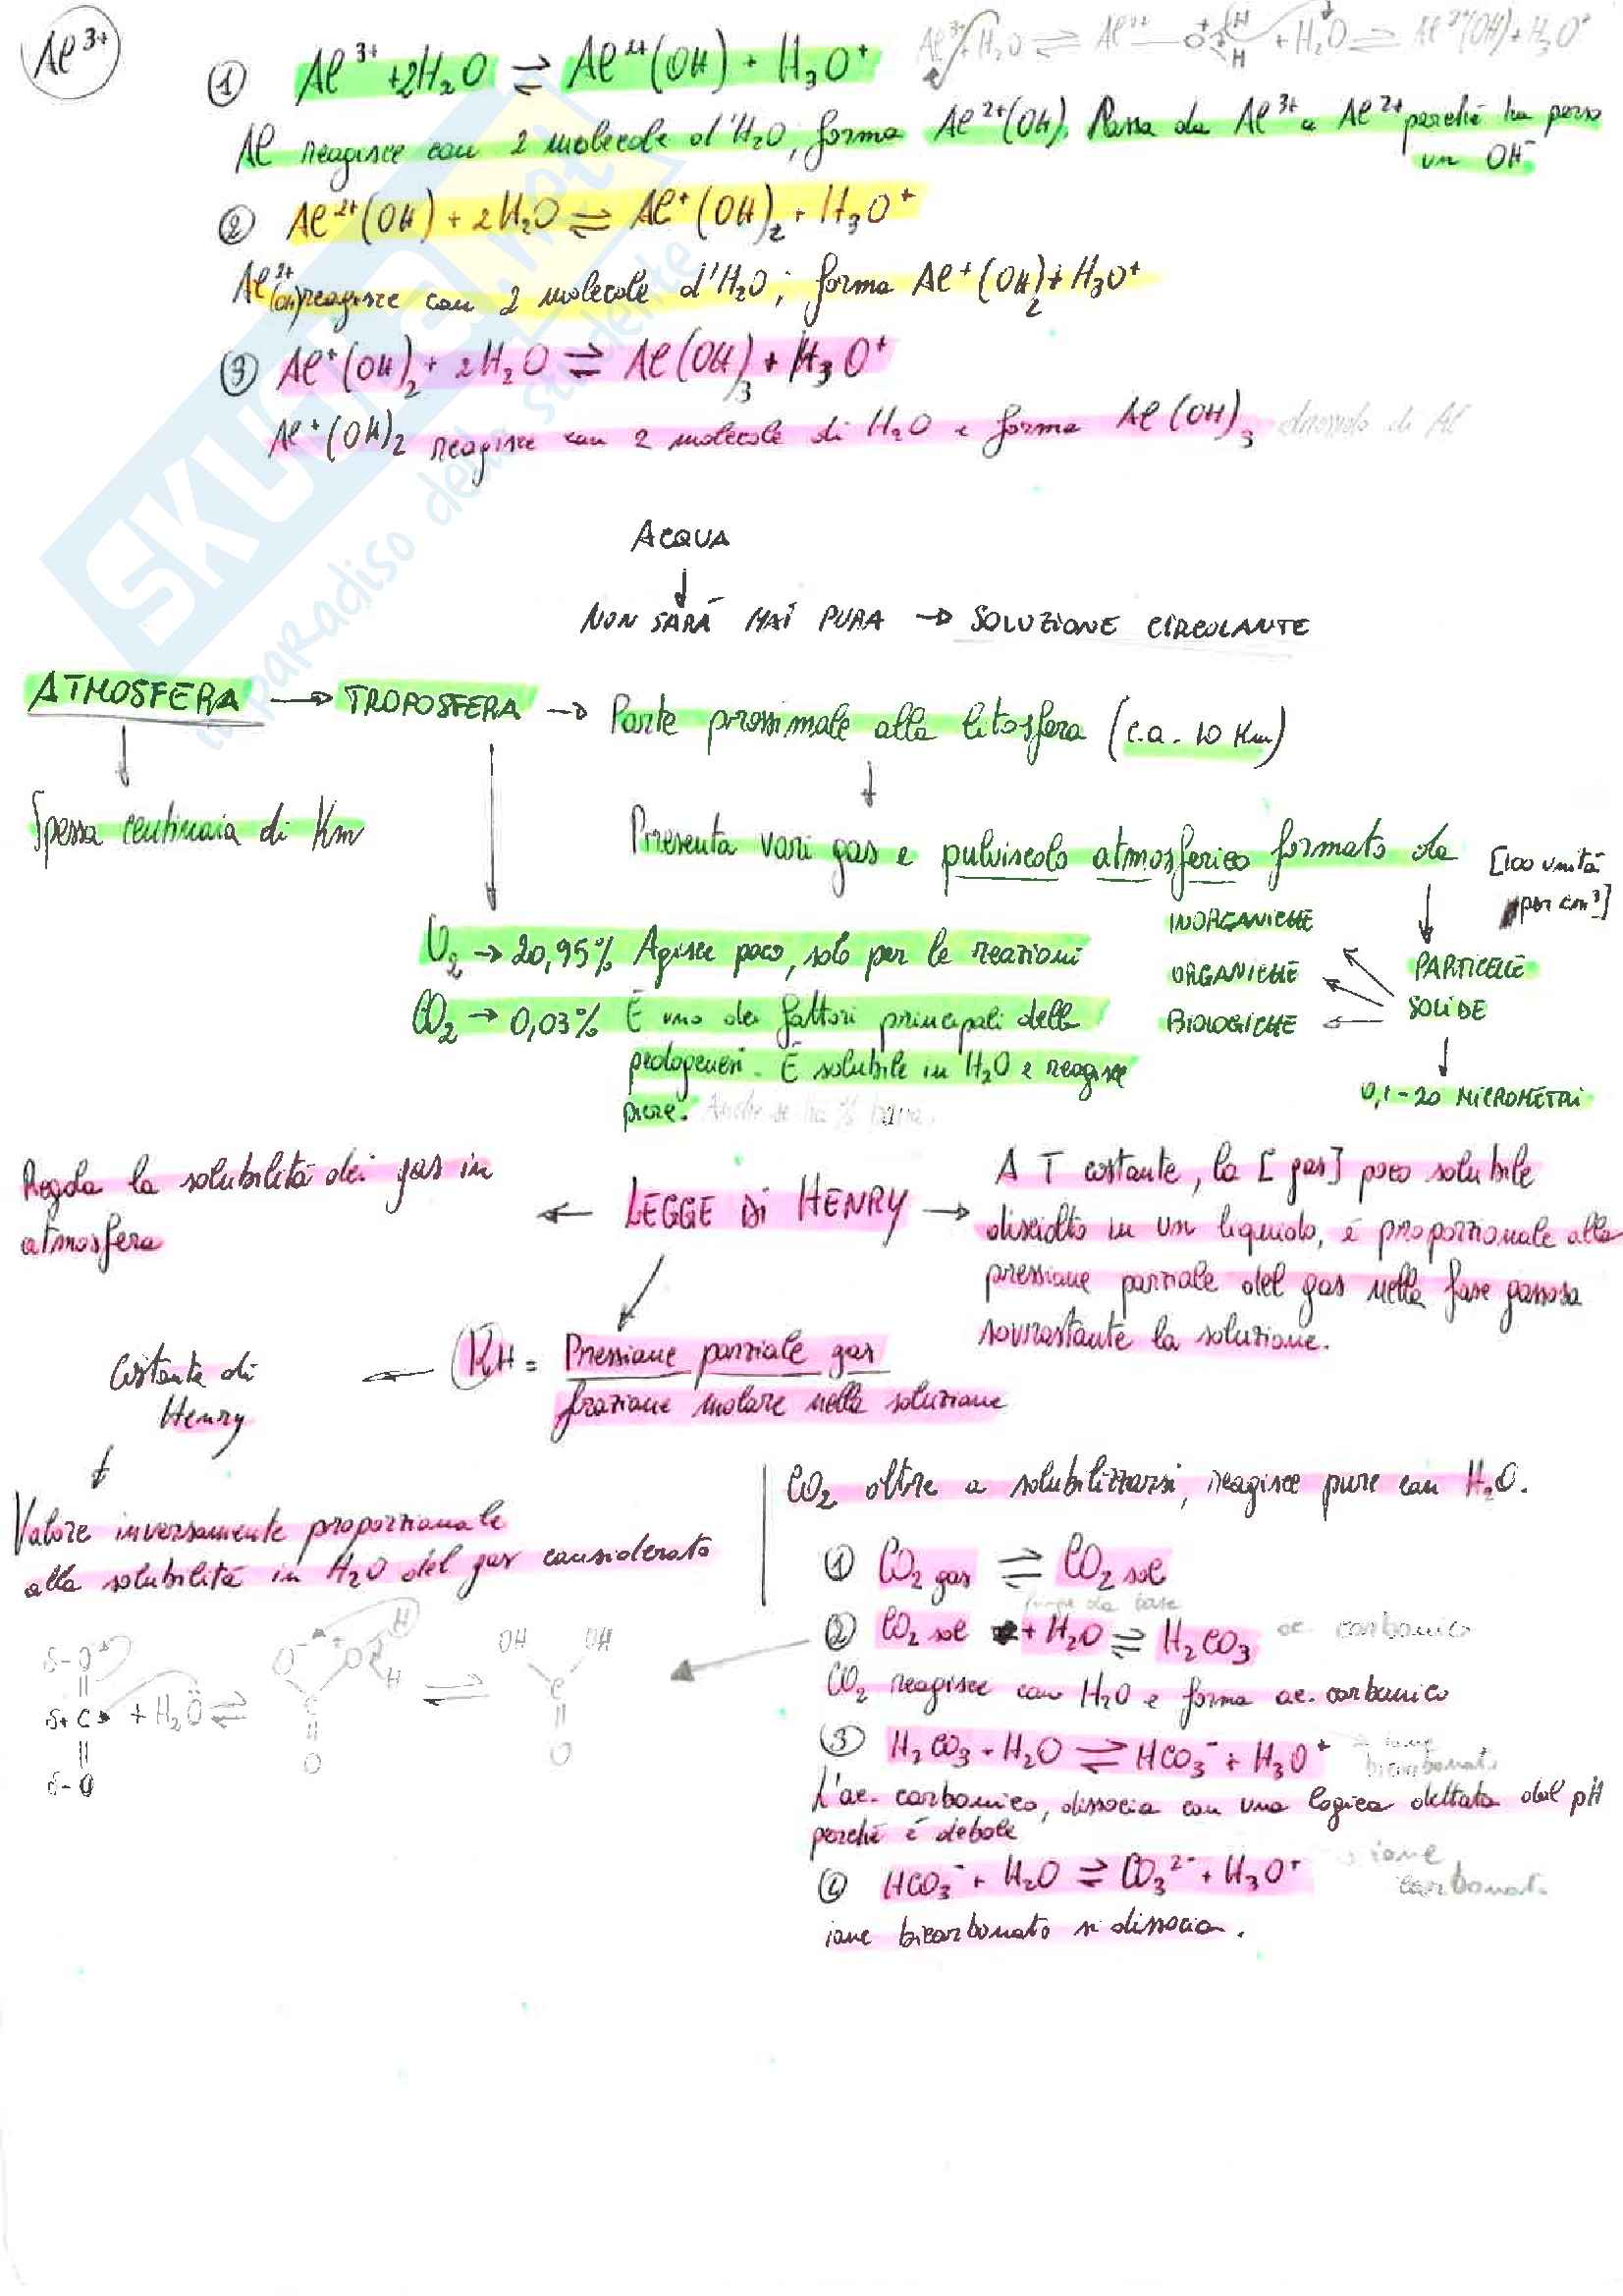 Al³⁺
Al³⁺ + H₂O ⇌ Al³⁺ — O⁺ H H + H₂O ⇌ Al²⁺(OH) + H₃O⁺
① Al³⁺ + 2H₂O ⇌ Al²⁺(OH) + H₃O⁺
Al reagisce con 2 molecole d'H₂O, forma Al²⁺(OH). Passa da Al³⁺ a Al²⁺ perchè ha perso
un OH⁻
② Al²⁺(OH) + 2H₂O ⇌ Al⁺(OH)₂ + H₃O⁺
Al²⁺(OH) reagisce con 2 molecole d'H₂O, forma Al⁺(OH)₂ + H₃O⁺
③ Al⁺(OH)₂ + 2H₂O ⇌ Al(OH)₃ + H₃O⁺
Al⁺(OH)₂ reagisce con 2 molecole di H₂O e forma Al(OH)₃ di Al
SKUOLA.net
il paradiso dello studente
ACQUA
↓
NON SARÀ MAI PURA → SOLUZIONE CIRCOLANTE
ATMOSFERA → TROPOSFERA → Parte prossimale alla litosfera (c.a. 10 Km)
Spessa centinaia di Km
Presenta vari gas e pulviscolo atmosferico formato da
[100 unità
per cm³]
PARTICELLE
SOLIDE
INORGANICHE
ORGANICHE
BIOLOGICHE
0,1-20 MICROMETRI
O₂ → 20,95% Agisce poco, solo per le reazioni
CO₂ → 0,03% È uno dei fattori principali della
pedogenesi. È solubile in H₂O e reagisce
pure. Anche se ha % bassa.
Regola la solubilità dei gas in
atmosfera
← LEGGE DI HENRY →
A T costante, la [gas] poco solubile
disciolto in un liquido, è proporzionale alla
pressione parziale del gas nella fase gassosa
sovrastante la soluzione.
KH = Pressione parziale gas
frazione molare nella soluzione
Costante di
Henry
Valore inversamente proporzionale
alla solubilità in H₂O del gas considerato
CO₂ oltre a solubilizzarsi, reagisce pure con H₂O.
① CO₂ gas ⇌ CO₂ sol
funge da base
② CO₂ sol + H₂O ⇌ H₂CO₃ ac. carbonico
CO₂ reagisce con H₂O e forma ac. carbonico
③ H₂CO₃ + H₂O ⇌ HCO₃⁻ + H₃O⁺ → ione
bicarbonato
L'ac. carbonico, dissocia con una logica dettata dal pH
perchè è debole
④ HCO₃⁻ + H₂O ⇌ CO₃²⁻ + H₃O⁺ → ione
carbonato
ione bicarbonato si dissocia.
δ- O
δ+ C + H₂O ⇌
δ- O
O⁻ ⁺O H H C O ⇌
OH OH C O